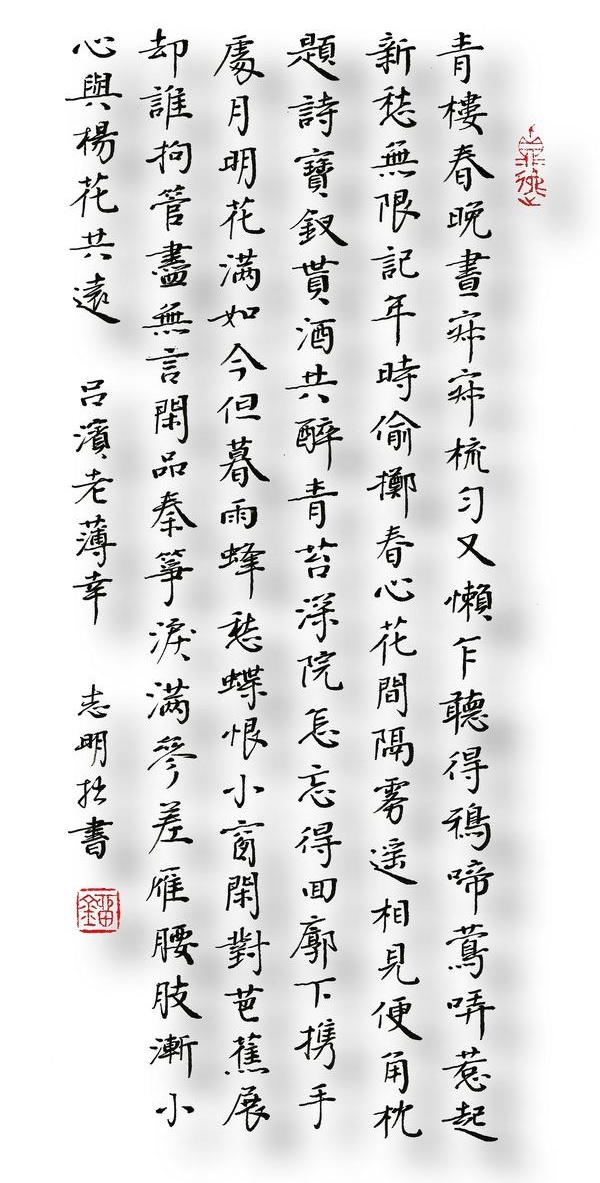 青樓春晚晝寂寂梳匀又懶乍聽得鴉啼鶯哢惹起
新愁無限記年時偷擲春心花間隔雾遥相見便角枕
題詩寶釵貰酒共醉青苔深院怎忘得囬廊下携手
處月明花滿如今但暮雨蜂愁蝶恨小窗閑對芭蕉展
却誰拘管盡無言閑品秦箏淚滿參差雁腰肢漸小
心與楊花共遠 呂濱老薄幸 志明拙書